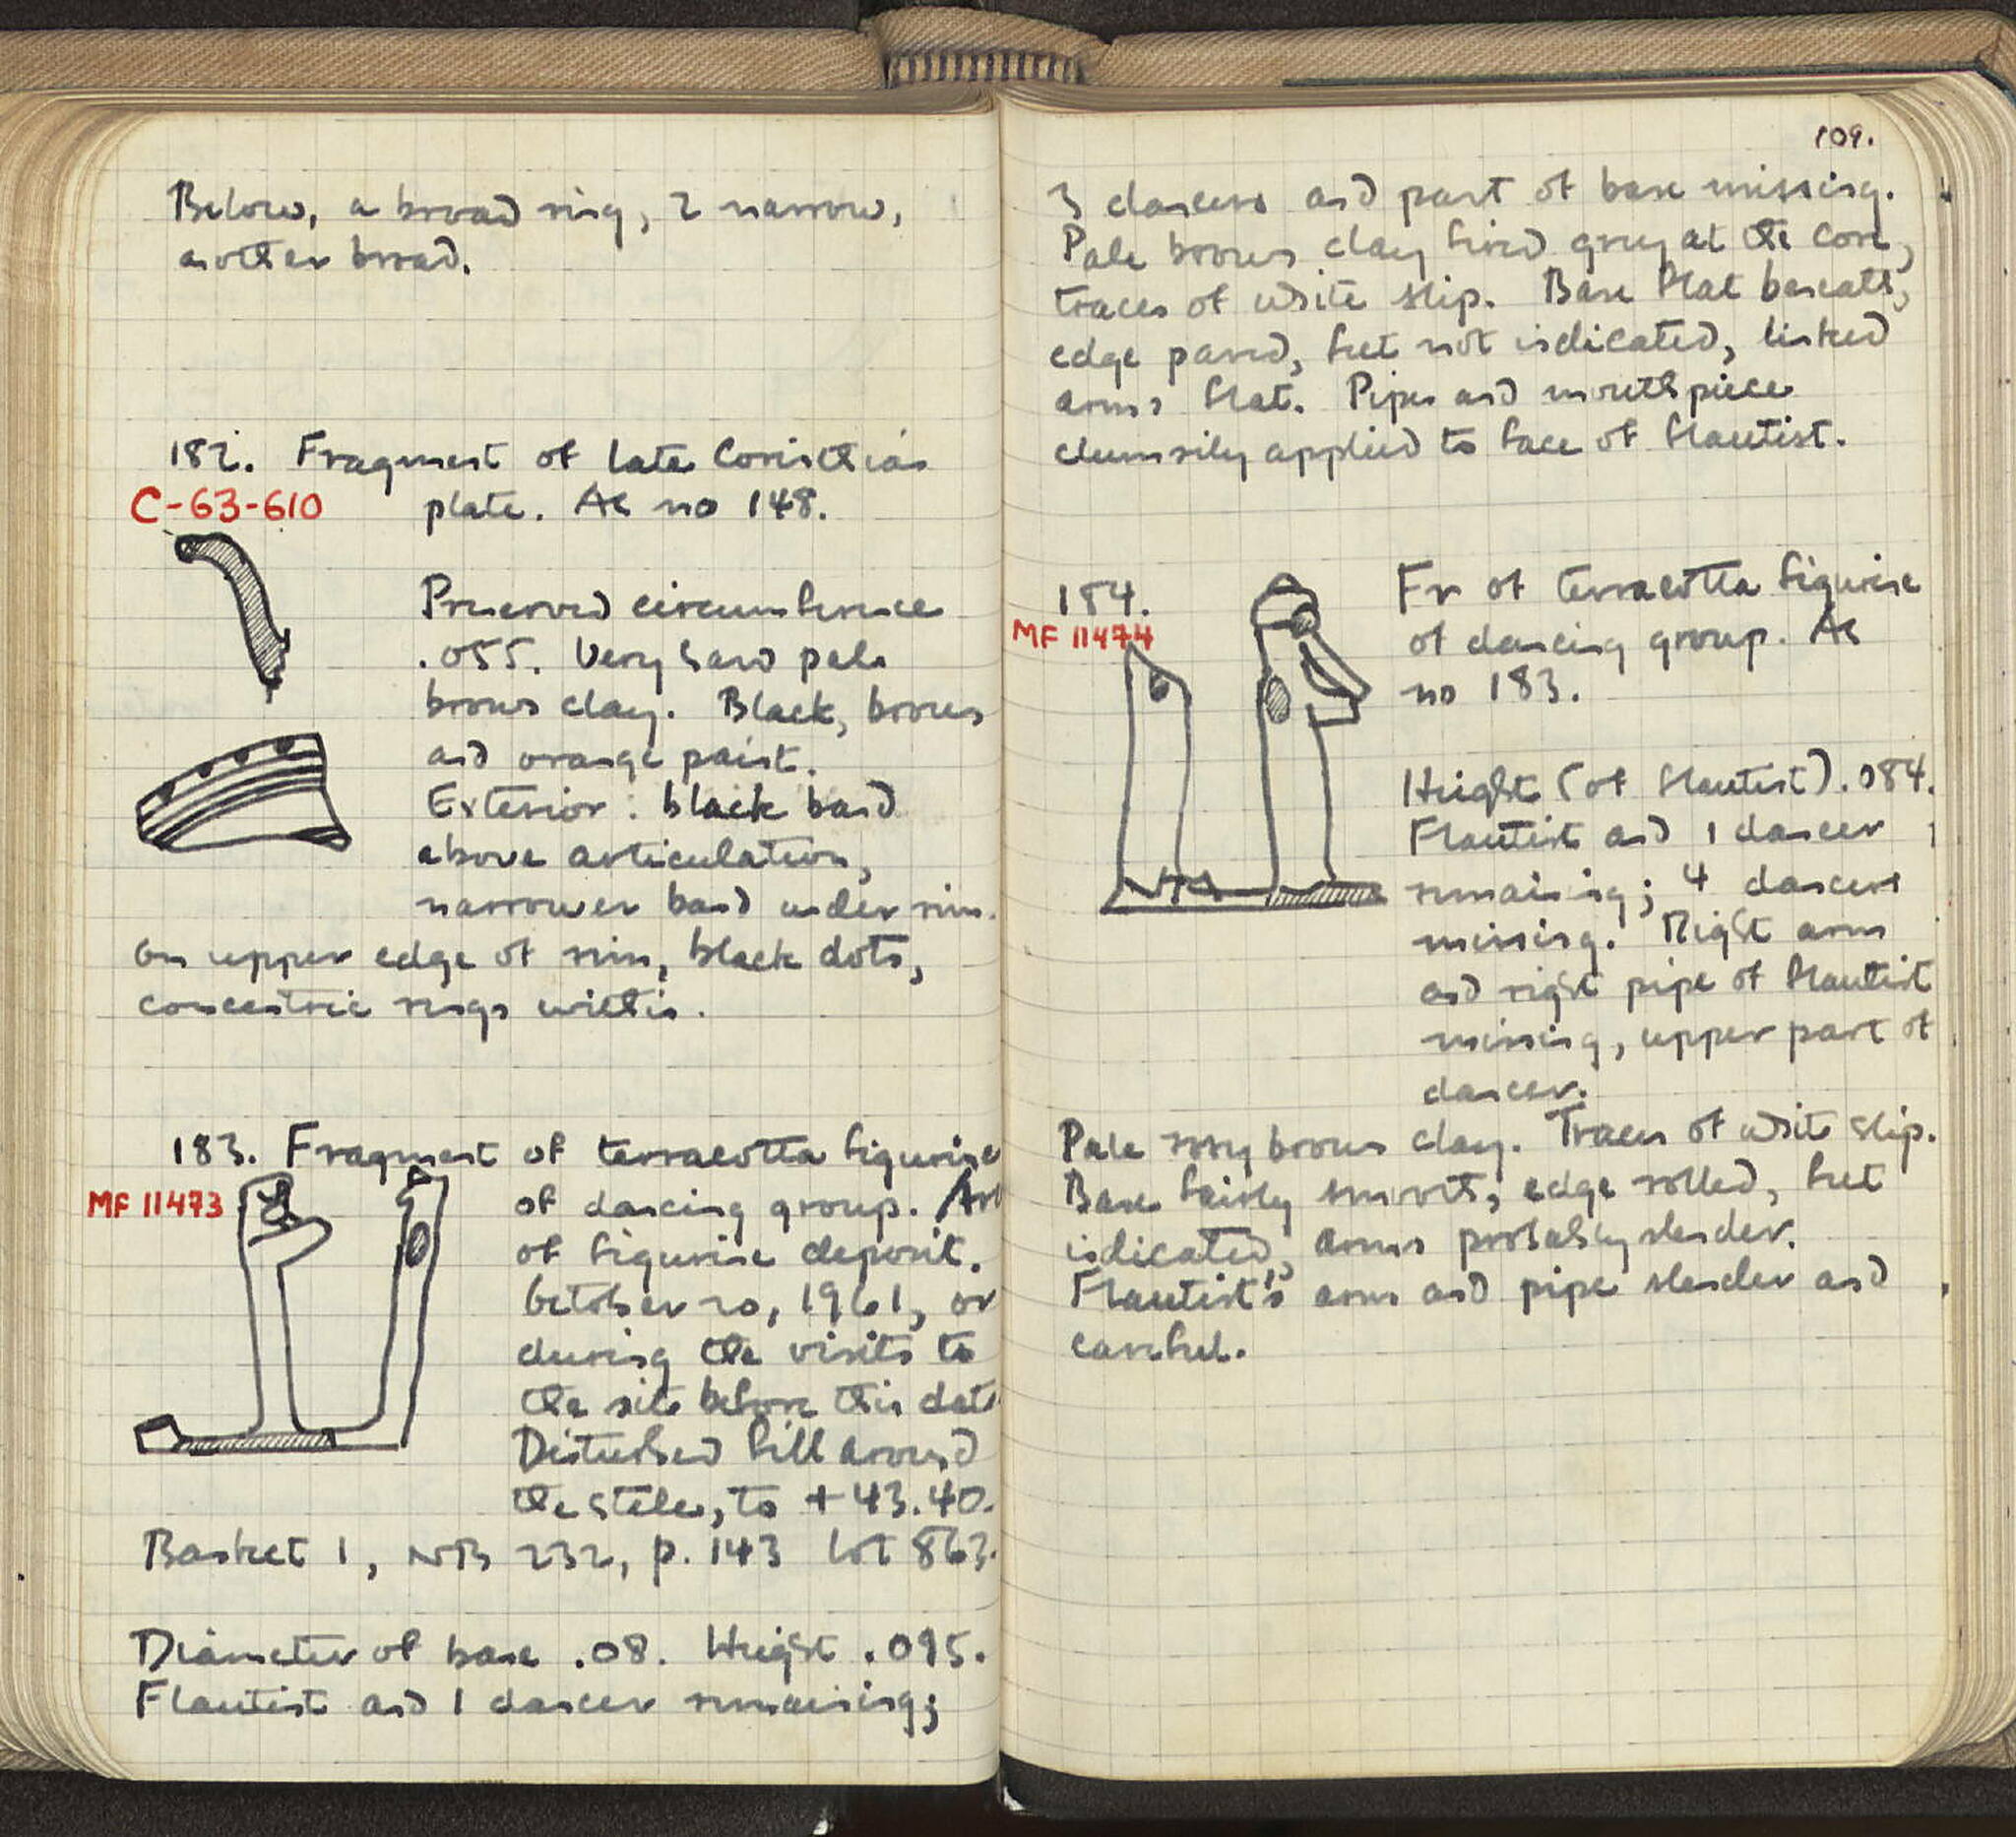 Below, a broad ring, 2 narrow,
another broad.
182. Fragment of late Corinthian
C-63-610
plate. As no 148.
Preserved circumference
.055. Very hard pale
brown clay. Black, brown
and orange paint.
Exterior: black band
above articulation,
narrower band under rim.
On upper edge of rim, black dots,
concentric rings within.
183. Fragment of terracotta figurine
MF 11473
of dancing group.
of figurine deposit.
October 20, 1961, or
during the visits to
the site before this date
Disturbed fill around
the stele, to +43.40.
Basket 1, NB 232, p. 143 lot 863.
Diameter of base .08. Height .095.
Flautist and 1 dancer remaining;
109.
3 dancers and part of base missing.
Pale brown clay fired grey at the core,
traces of white slip. Base flat beneath,
edge pared, feet not indicated, linked
arms flat. Pipes and mouthpiece
clumsily applied to face of flautist.
184.
MF 11474
Fr of terracotta figurine
of dancing group. As
no 183.
Height (of flautist) .084.
Flautist and 1 dancer
remaining; 4 dancers
missing. Right arm
and right pipe of flautist
missing, upper part of
dancer.
Pale rosy brown clay. Traces of white slip.
Base fairly smooth, edge rolled, feet
indicated, arms probably slender.
Flautist's arm and pipe slender and
careful.